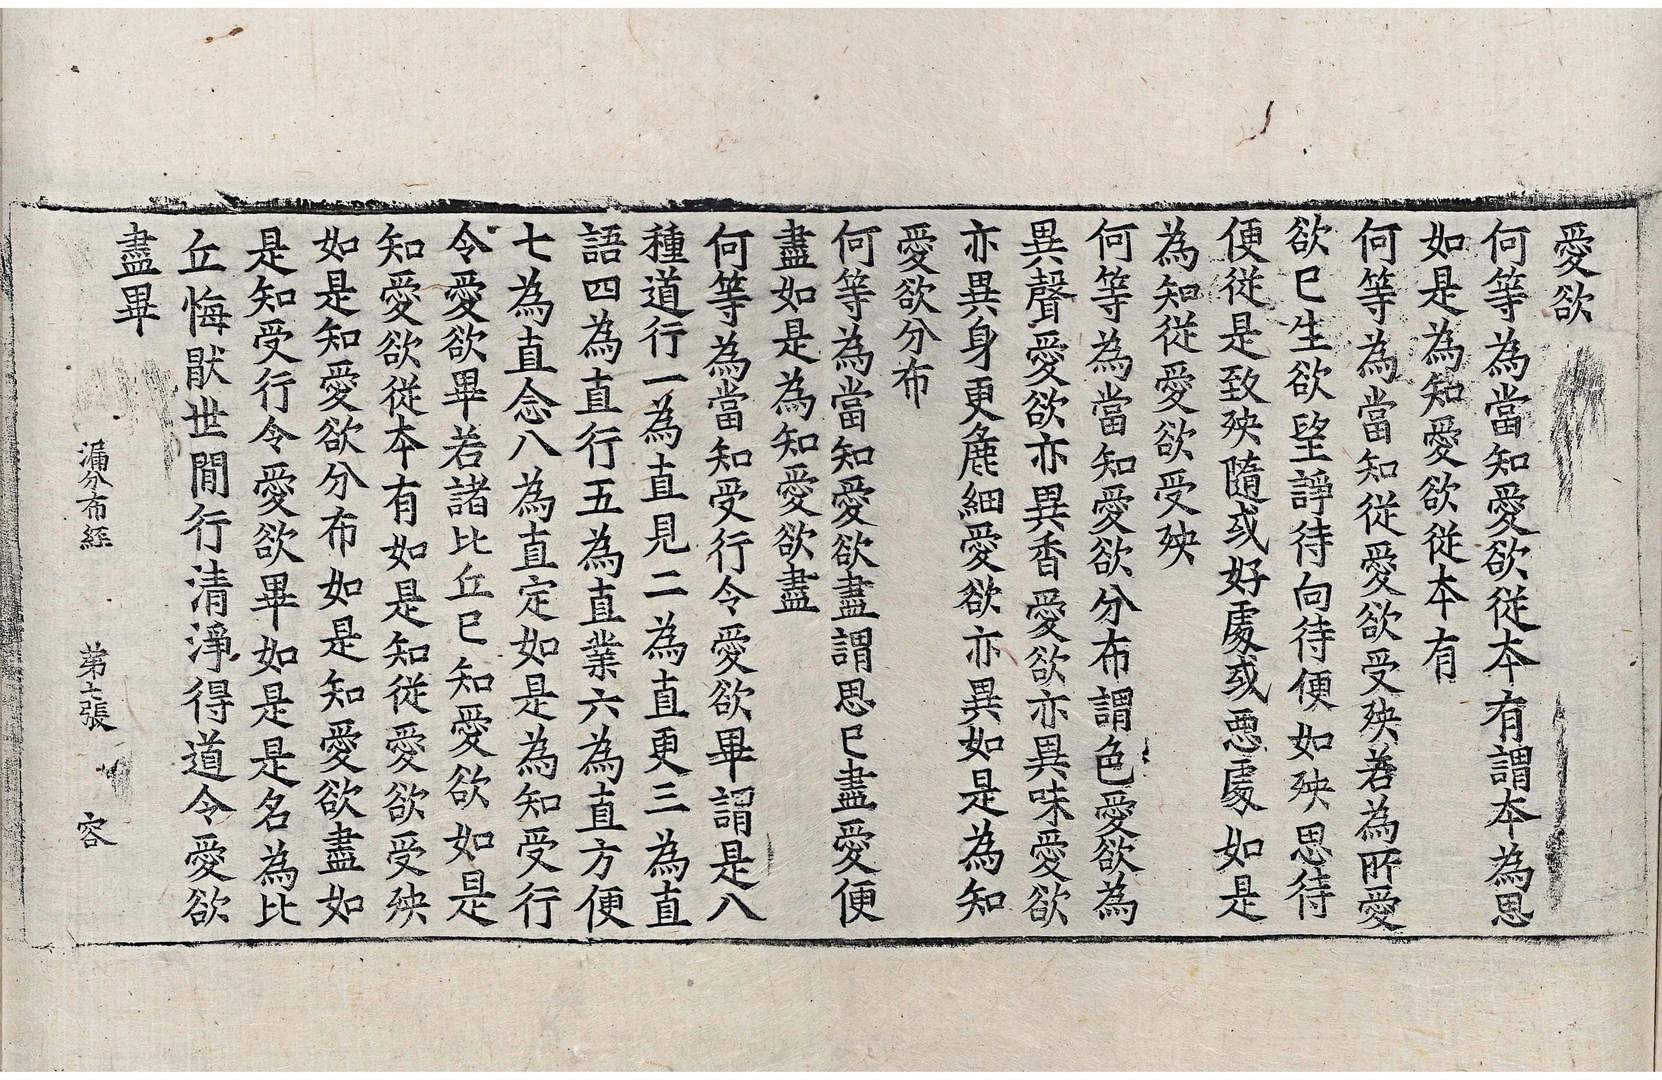 愛欲
何等為當知愛欲従本有謂本為思
如是為知愛欲従本有
何等為當知従愛欲受殃若為所愛
欲已生欲望諍待向待便如殃思待
便従是致殃隨或好處或惡處如是
為知従愛欲受殃
何等為當知愛欲分布謂色愛欲為
異聲愛欲亦異香愛欲亦異味愛欲
亦異身更麁細愛欲亦異如是為知
愛欲分布
何等為當知愛欲盡謂思已盡愛便
盡如是為知愛欲盡
何等為當知受行令愛欲畢謂是八
種道行一為直見二為直更三為直
語四為直行五為直業六為直方便
七為直念八為直定如是為知受行
令愛欲畢若諸比丘已知愛欲如是
知愛欲従本有如是知従愛欲受殃
如是知愛欲分布如是知愛欲盡如
是知受行令愛欲畢如是是名為比
丘悔猒世間行清淨得道令愛欲
盡畢
漏分布經 第七張 容